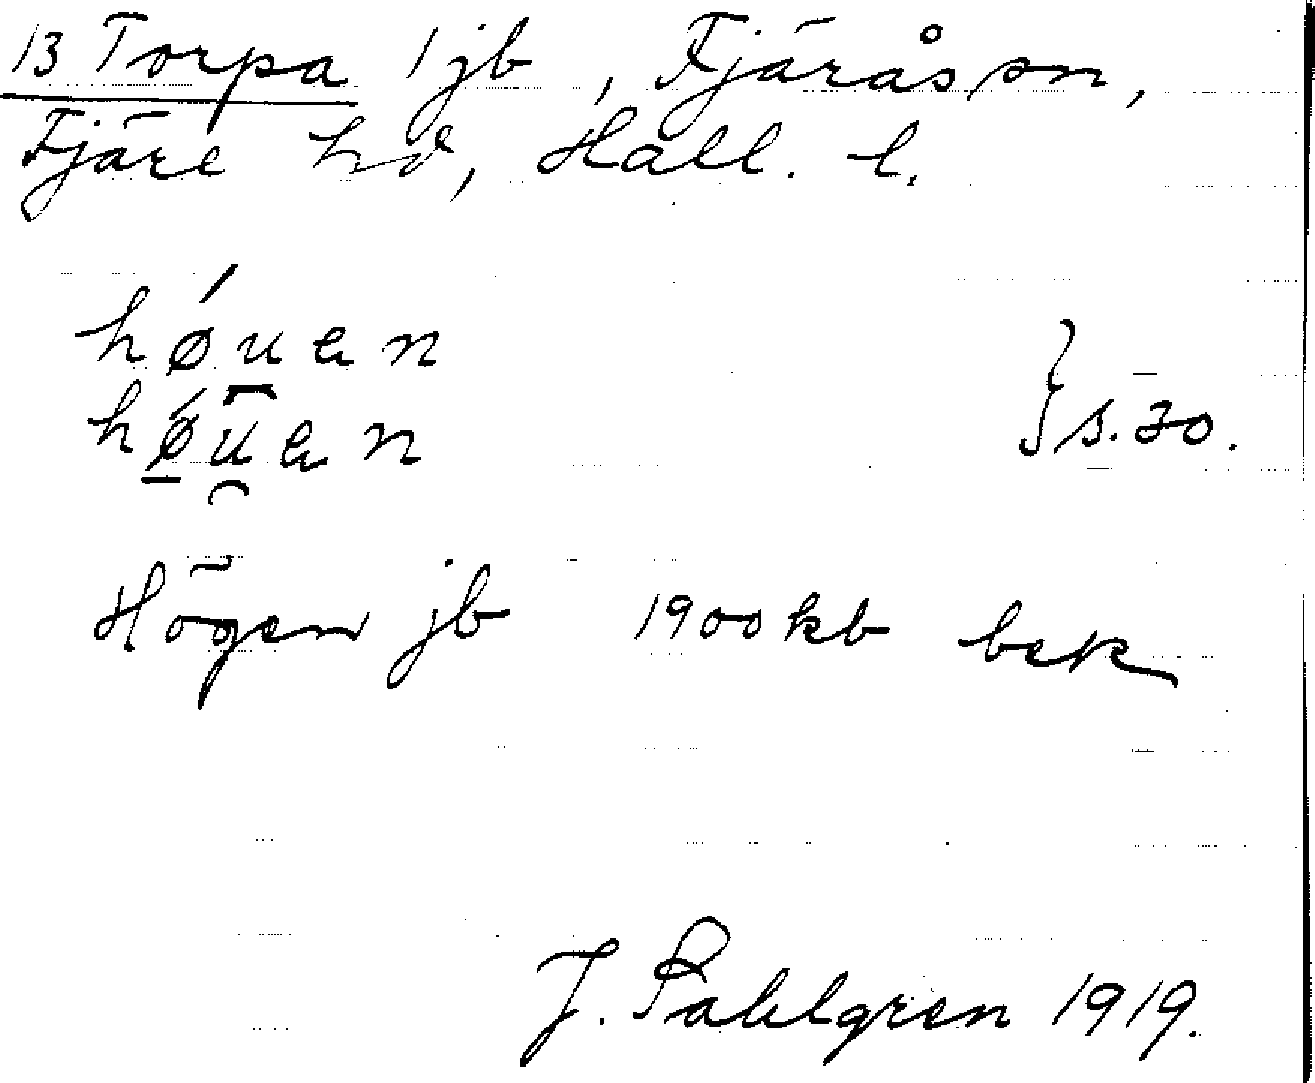 13 Torpa 1 jb, Fjärås sn,
Fjäre hd, Hall. l.
hǿuen
hǿuen } s. 30.
Högen jb 1900 kb bek
J. Sahlgren 1919.